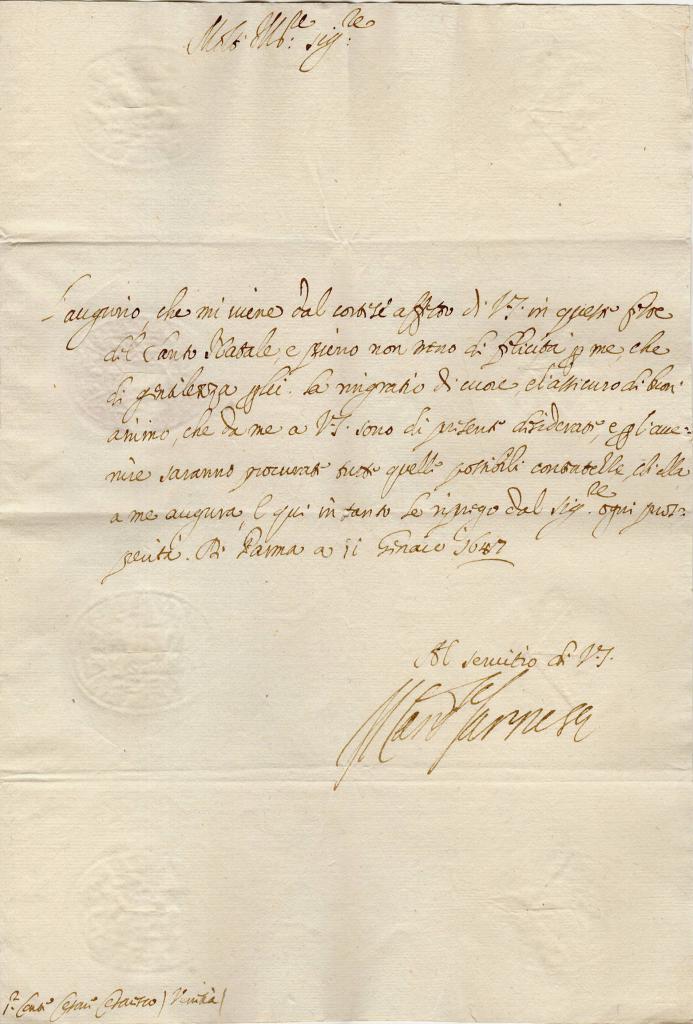 Molt' Ill.re sig.re
L'augurio, che mi viene dal cortese affetto di V.S. in queste feste
del Santo Natale, e pieno non meno di felicità p me, che
di gentilezza p lei. La ringratio di cuore, e l'assicuro di buon
animo, che da me a V.S. sono di presente desiderate, e p l'auue=
nire saranno procurate tutte quelle possibili contentezze, ch'ella
a me augura, E qui in tanto le prego dal Sig.re ogni pros-
perità. Di Parma a 11 Genaio 1647
Al seruitio di V.S.
Farnese